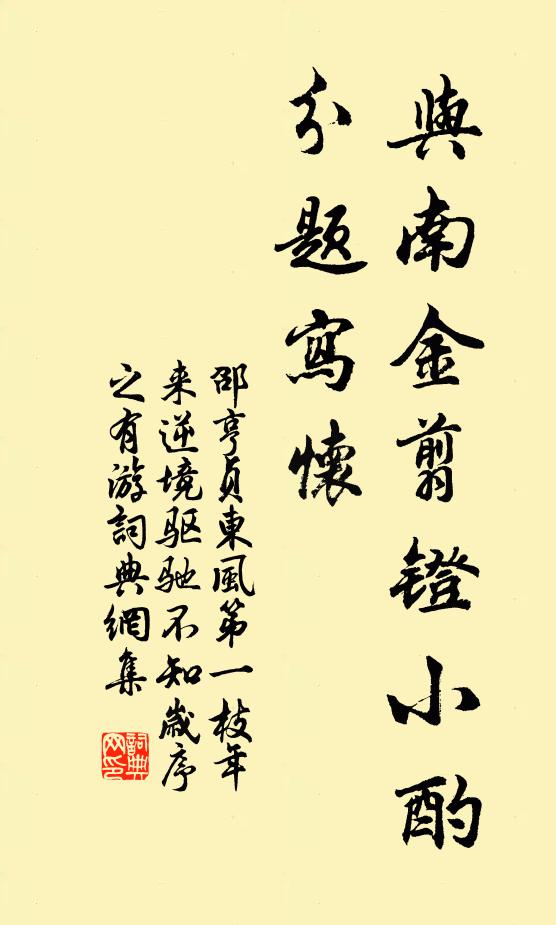 與南金剪鐙小酌
分題寫懷
邵亨貞東風第一枝年
来逆境驱驰不知歲序
之有游詞典網集
詞典网印